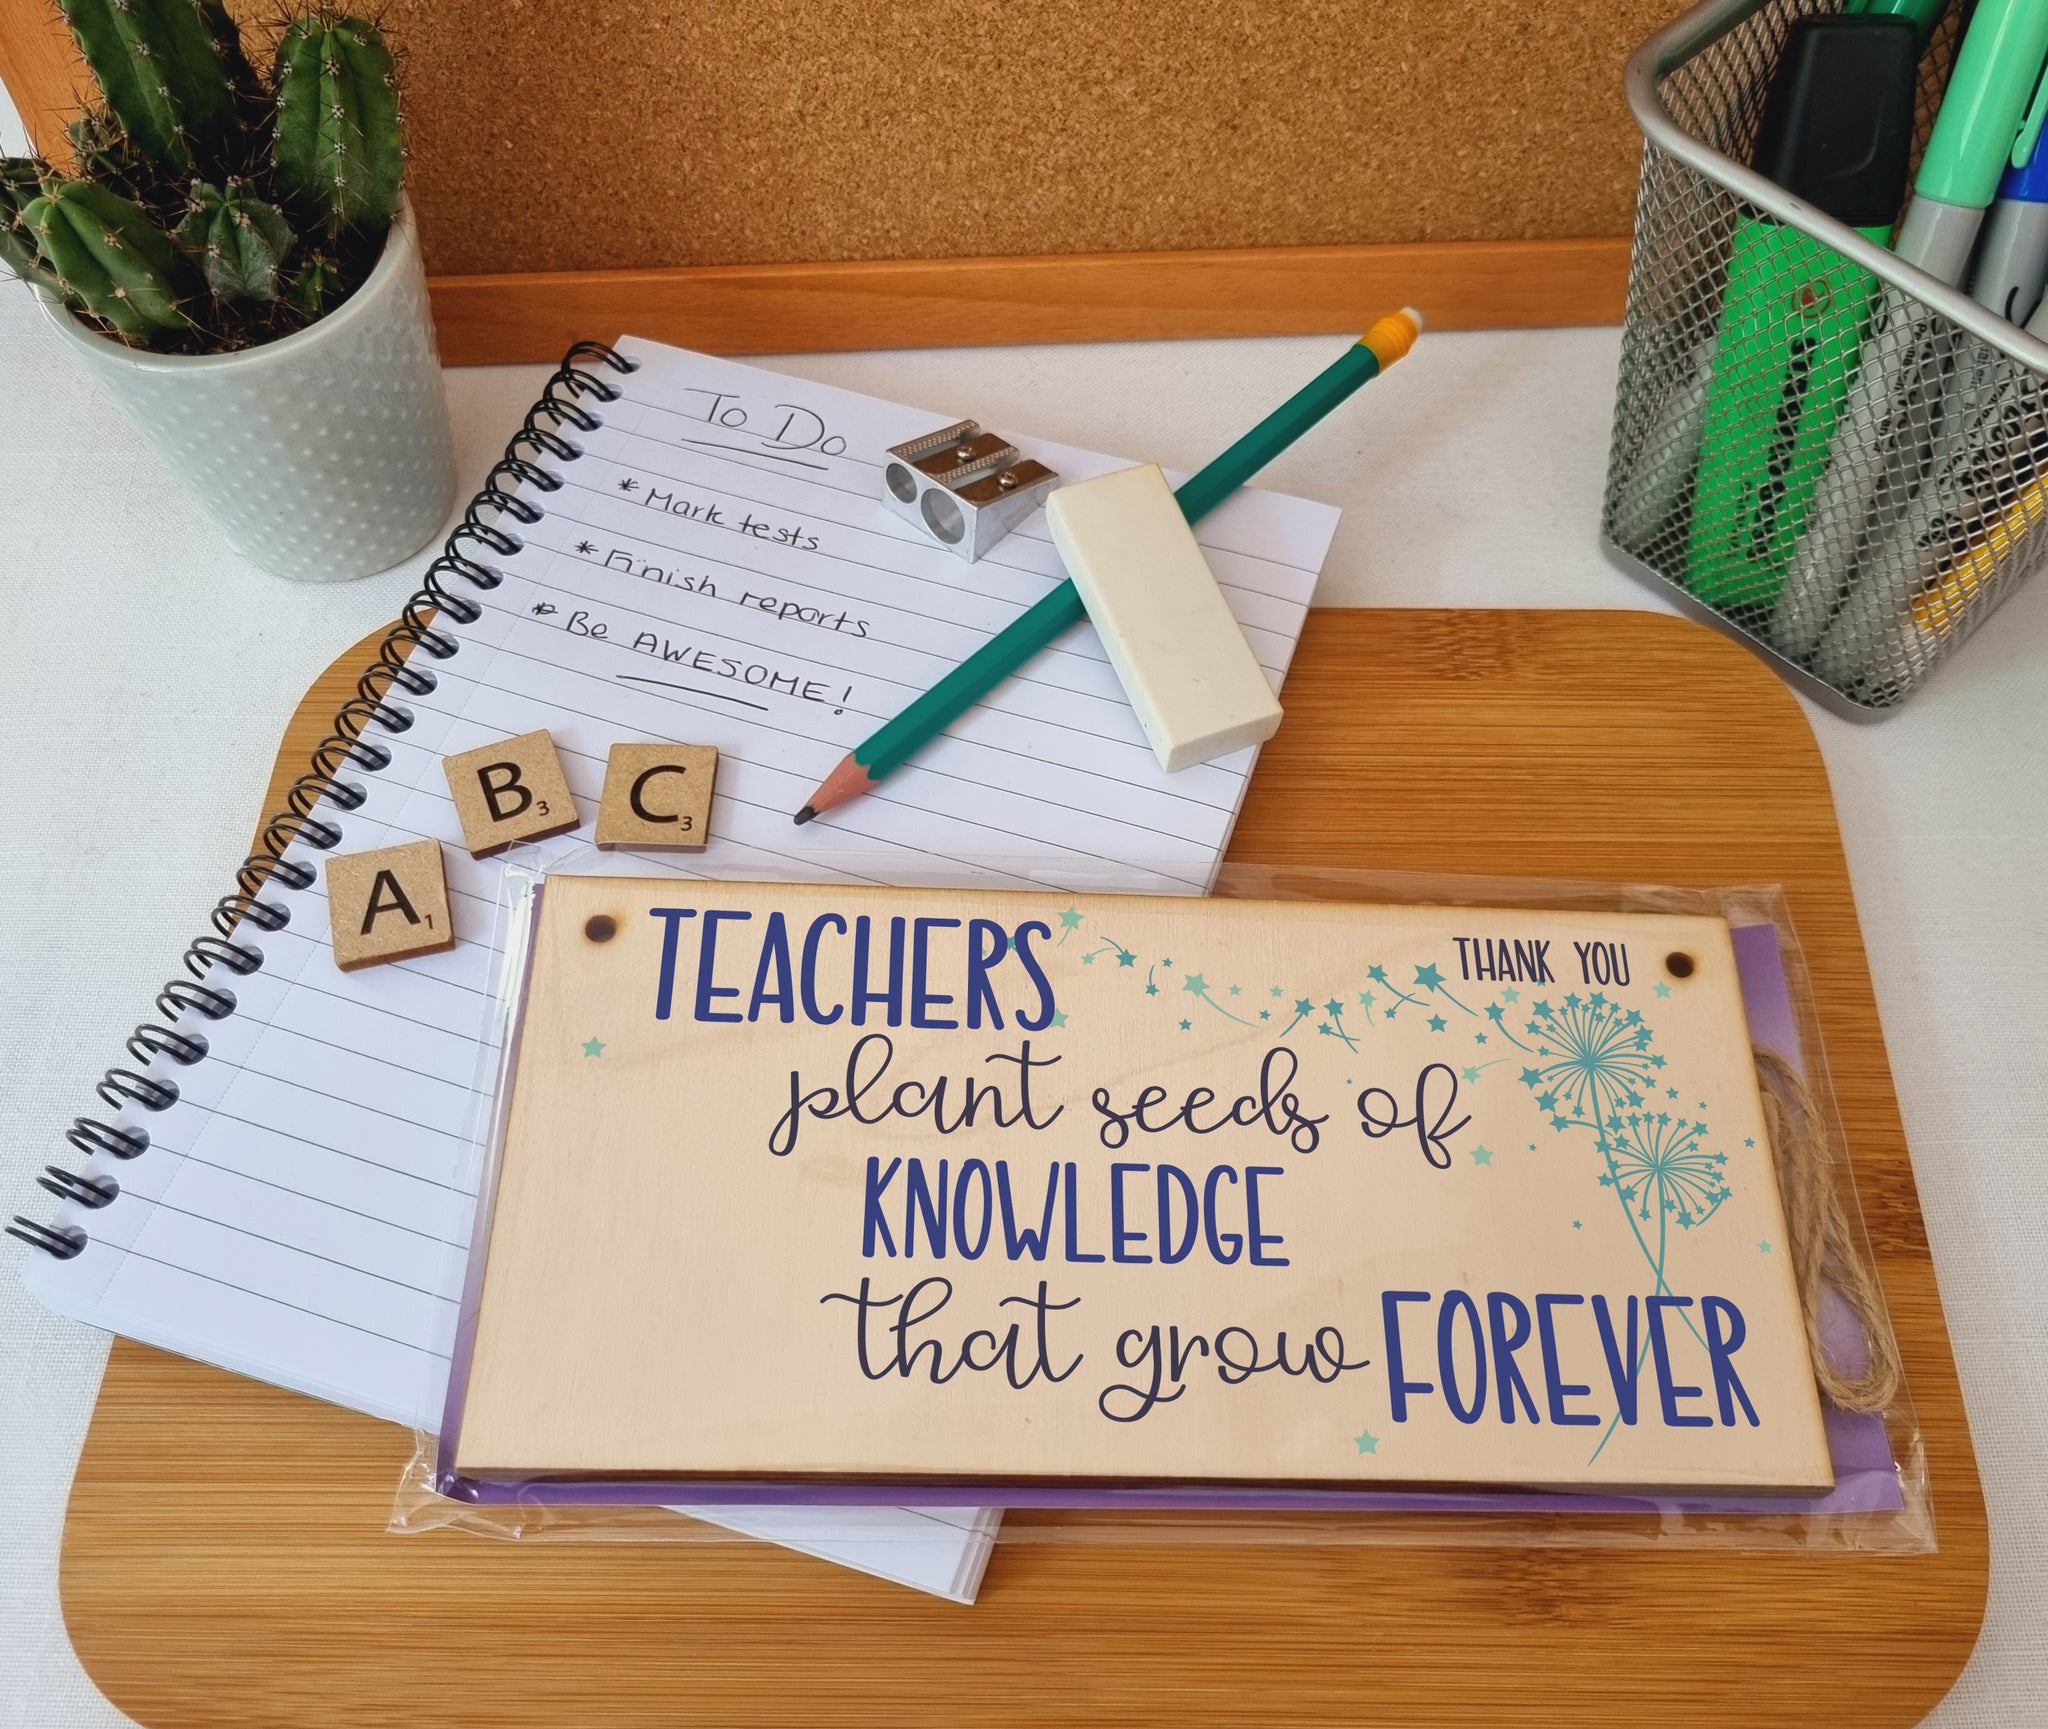 To Do
* Mark tests
* Finish reports
* Be AWESOME!
B3
C3
A1
TEACHERS
THANK YOU
plant seeds of
KNOWLEDGE
that grow FOREVER